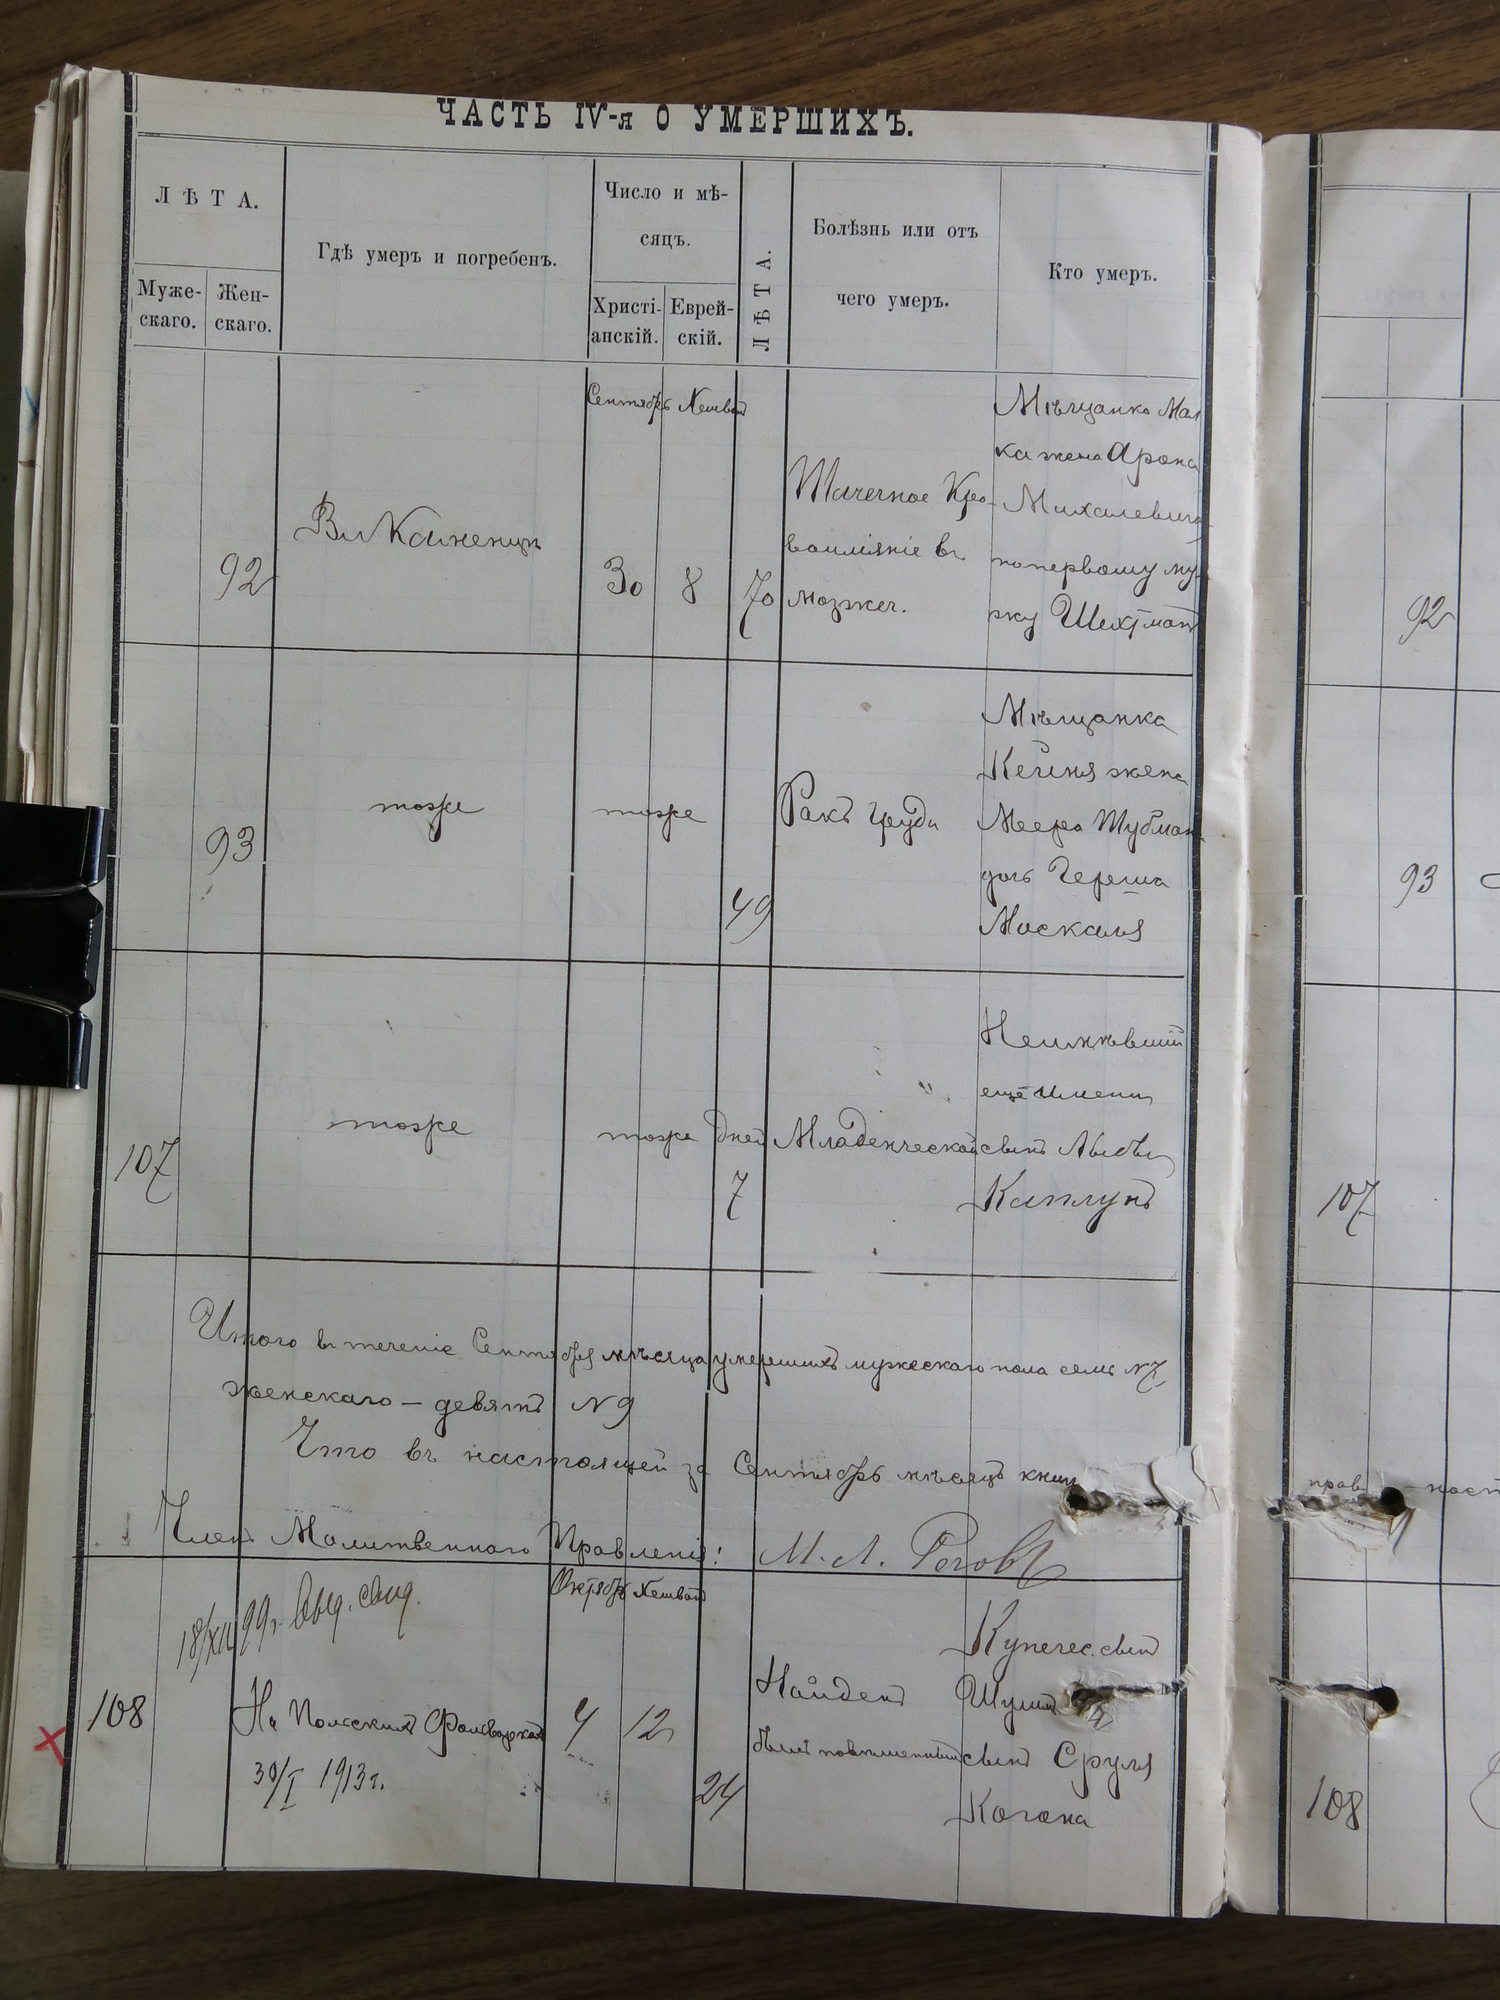 ЧАСТЬ IV-я О УМЕРШИХЪ.
ЛѢТА.
Муже-
скаго.
Жен-
скаго.
Гдѣ умеръ и погребенъ.
Число и мѣ-
сяцъ.
Христі-
анскій.
Еврей-
скій.
ЛѢТА.
Болѣзнь или отъ
чего умеръ.
Кто умеръ.
92
Сентябрь
30
8
70
Кро-
въ
Мѣщанка Мал
ка жена Арона
Михалевича
по первому му-
жу Шехтманъ
93
тоже
тоже
49
Ракъ груди
Мѣщанка
Кейля жена
Меера
дочь Герша
Москаля
107
тоже
тоже
дней
7
Младенческой
Неимѣвшій
ещё имени
сынъ
Каплунъ
Итого въ теченіе Сентября мѣсяца умершихъ мужескаго пола семь №7,
женскаго — девять №9
Что въ настоящей за Сентябрь мѣсяцъ книг
Членъ Молитвеннаго Правленія:
18/XII 99 г. Выд. свид.
108
На Польскихъ Фольваркахъ
30/I 1913 г.
Октябрь
4
12
24
Найденъ
былъ повѣшеннымъ
Купечес. сынъ
сынъ Сруля
Когана
92
93
107
108